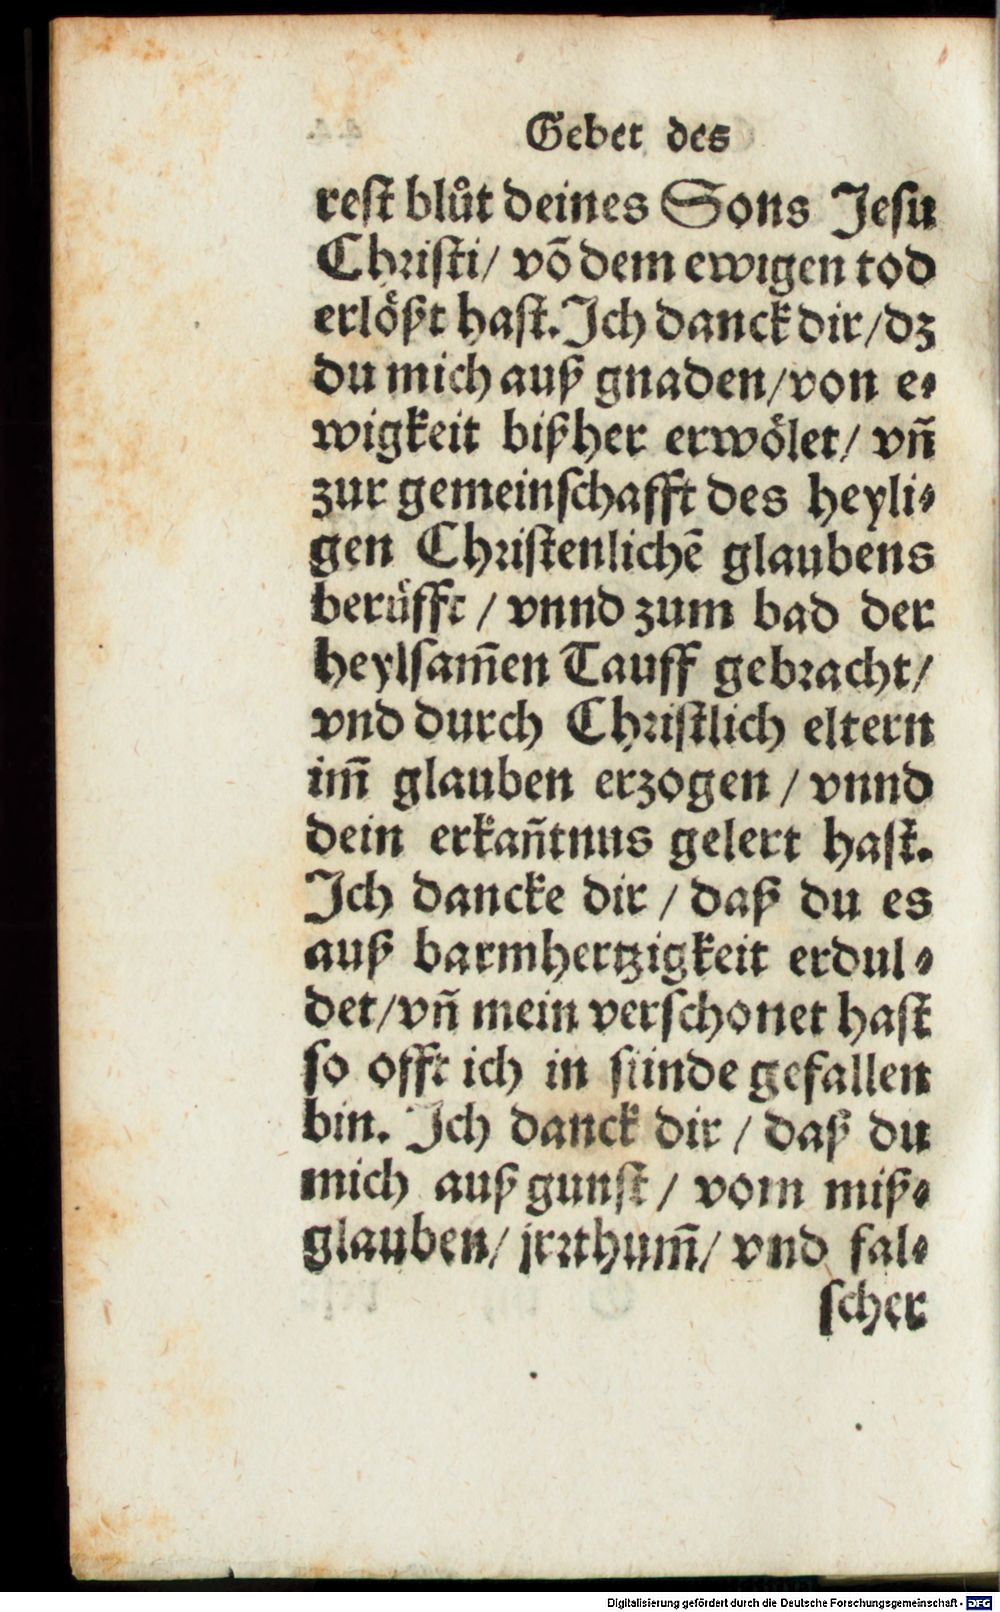 Gebet des
rest blůt deines Sons Jesu
Christi/ võ dem ewigen tod
erlößt hast. Ich danck dir/dz
du mich auß gnaden/von e-
wigkeit bißher erwölet/ vñ
zur gemeinschafft des heyli-
gen Christenlichẽ glaubens
berüfft / vnnd zum bad der
heylsam̃en Tauff gebracht/
vnd durch Christlich eltern
im̃ glauben erzogen / vnnd
dein erkañtnus gelert hast.
Ich dancke dir / daß du es
auß barmhertzigkeit erdul-
det/vñ mein verschonet hast
so offt ich in sünde gefallen
bin. Ich danck dir / daß du
mich auß gunst / vom miß-
glauben/ jrrthum̃/ vnd fal-
scher
Digitalisierung gefördert durch die Deutsche Forschungsgemeinschaft - DFG